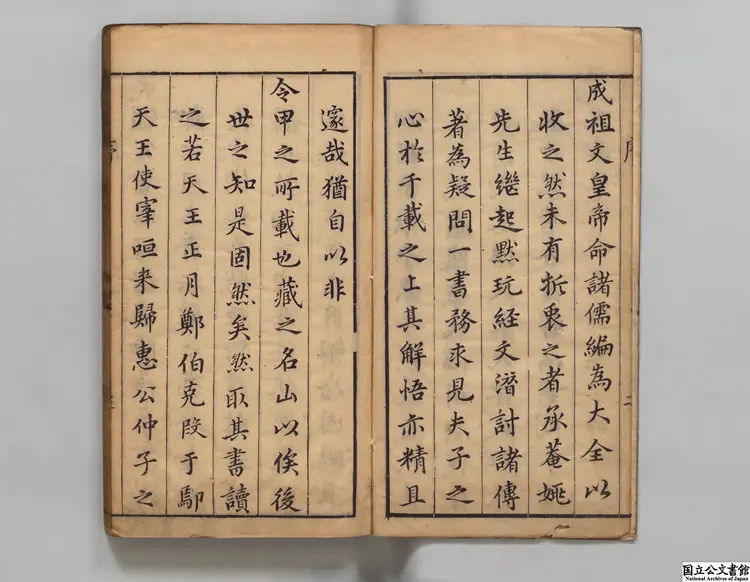 成祖文皇帝命諸儒編為大全以
收之然未有折衷之者承菴姚
先生継起黙玩経文潜討諸傳
著為疑問一書務求見夫子之
心於千載之上其解悟亦精且
邃哉猶自以非
令甲之所載也藏之名山以俟後
世之知是固然矣然取其書讀
之若天王正月鄭伯克段于鄢
天王使宰咺来歸惠公仲子之
国立公文書館
National Archives of Japan